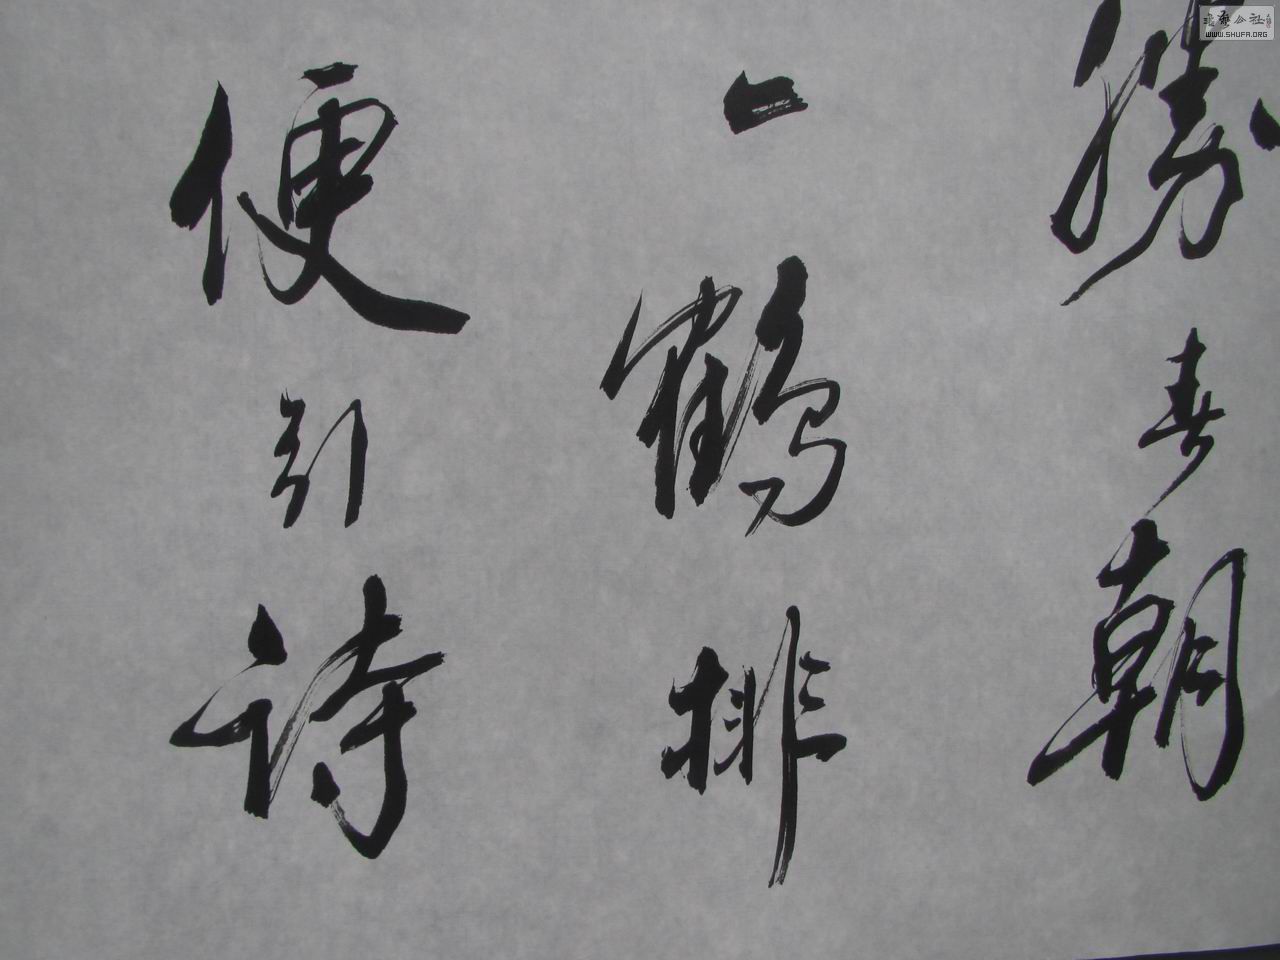 勝春朝
一鶴排
便引詩
書藝公社
WWW.SHUFA.ORG